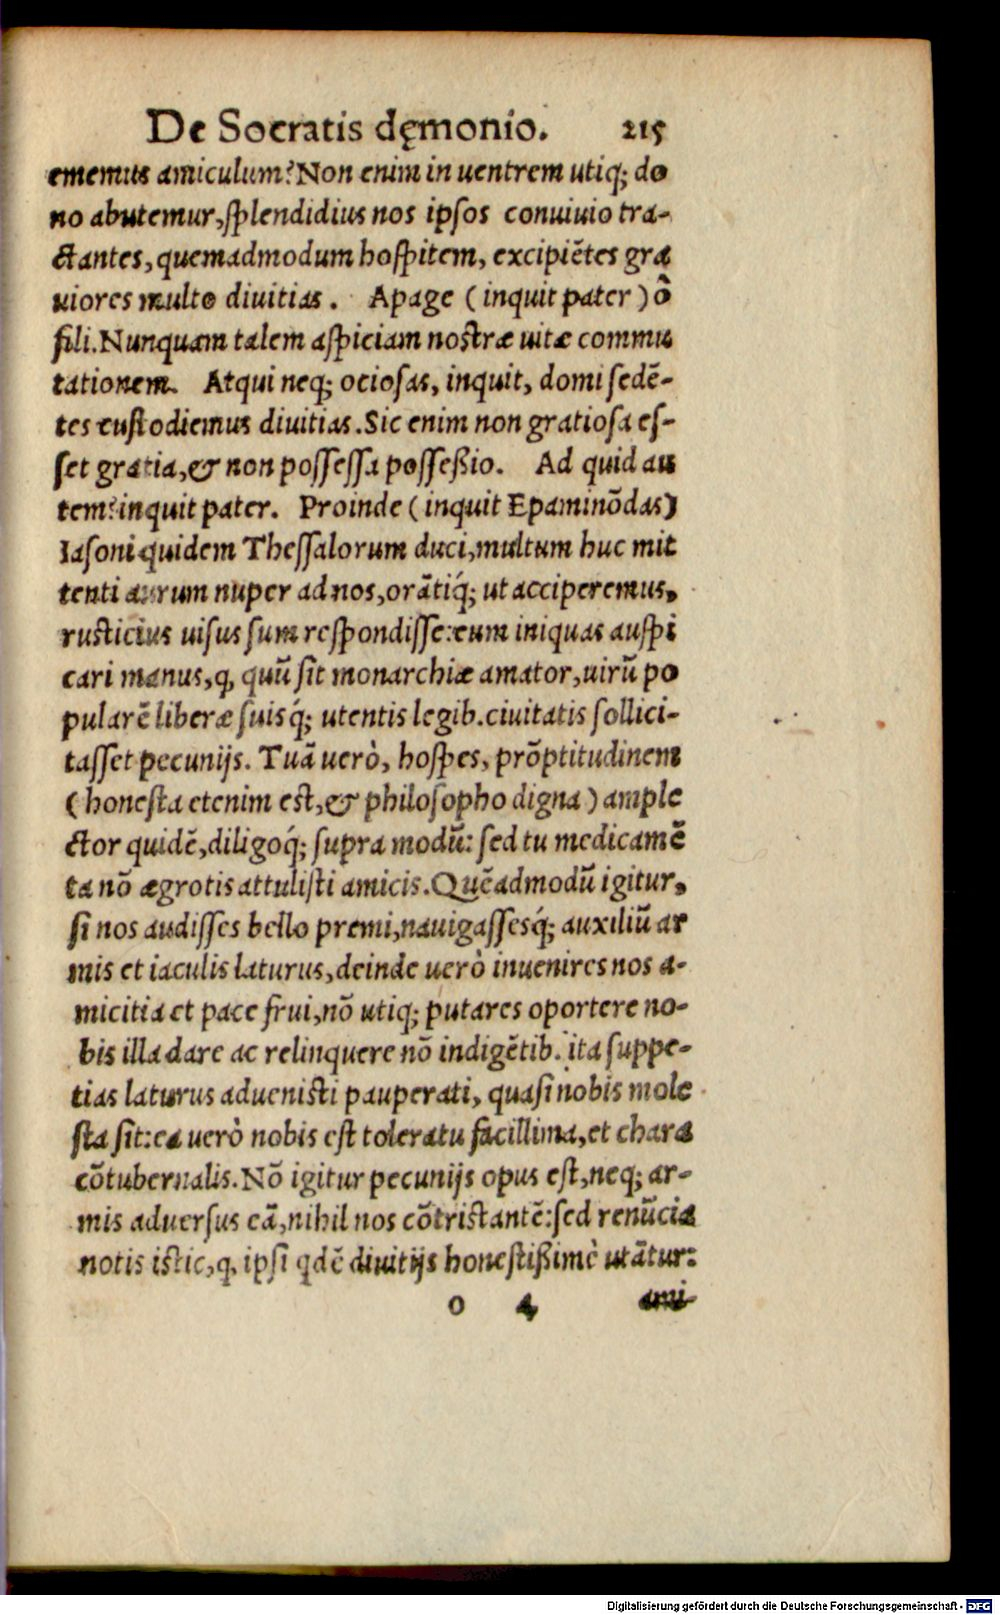 De Socratis dęmonio. 215
ememus amiculum? Non enim in uentrem utiq; do
no abutemur, splendidius nos ipsos conuiuio tra-
ctantes, quemadmodum hospitem, excipiẽtes gra
uiores multo diuitias. Apage (inquit pater) ô
fili. Nunquam talem aspiciam nostræ uitæ commu
tationem. Atqui neq; ociosas, inquit, domi sedẽ-
tes custodiemus diuitias. Sic enim non gratiosa es-
set gratia, & non possessa posseßio. Ad quid au
tem? inquit pater. Proinde (inquit Epaminõdas)
Iasoni quidem Thessalorum duci, multum huc mit
tenti aurum nuper ad nos, orãtiq́; ut acciperemus,
rusticius uisus sum respondisse: eum iniquas auspi
cari manus, q, quũ sit monarchiæ amator, uirũ po
pularẽ liberæ suisq́; utentis legib. ciuitatis sollici-
tasset pecunijs. Tuã uerò, hospes, prõptitudinem
(honesta etenim est, & philosopho digna) ample
ctor quidẽ, diligoq́; supra modũ: sed tu medicamẽ
ta nõ ægrotis attulisti amicis. Quẽadmodũ igitur,
si nos audisses bello premi, nauigassesq́; auxiliũ ar
mis et iaculis laturus, deinde uerò inuenires nos a-
micitia et pace frui, nõ utiq; putares oportere no-
bis illa dare ac relinquere nõ indigẽtib. ita suppe-
tias laturus aduenisti pauperati, quasi nobis mole
sta sit: ea uerò nobis est toleratu facillima, et chara
cõtubernalis. Nõ igitur pecunijs opus est, neq; ar-
mis aduersus eã, nihil nos cõtristantẽ: sed renũcia
notis istic, q, ipsi qdẽ diuitijs honestißimè utãtur:
o 4 ami-
Digitalisierung gefördert durch die Deutsche Forschungsgemeinschaft - DFG